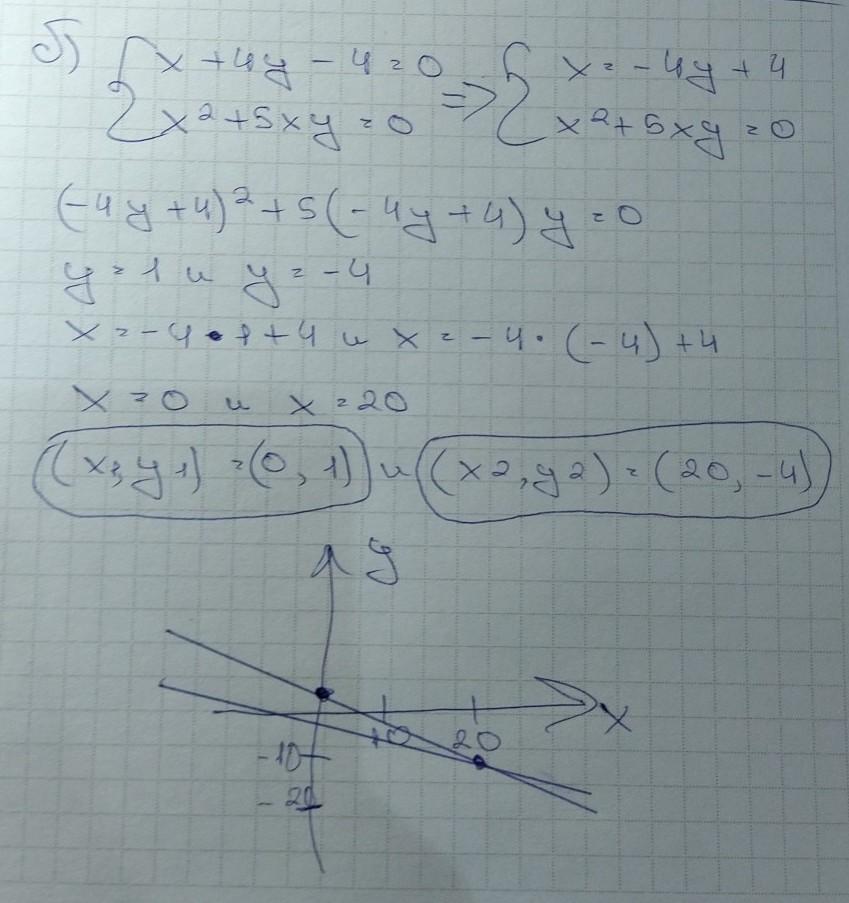 б) { x + 4y - 4 = 0 => { x = -4y + 4
x2 + 5xy = 0 x2 + 5xy = 0
(-4y + 4)2 + 5(-4y + 4) y = 0
y = 1 и y = -4
x = -4 • 1 + 4 и x = -4 · (-4) + 4
x = 0 и x = 20
(x1, y1) = (0, 1) и (x2, y2) = (20, -4)
y
x
10 20
-10
-20